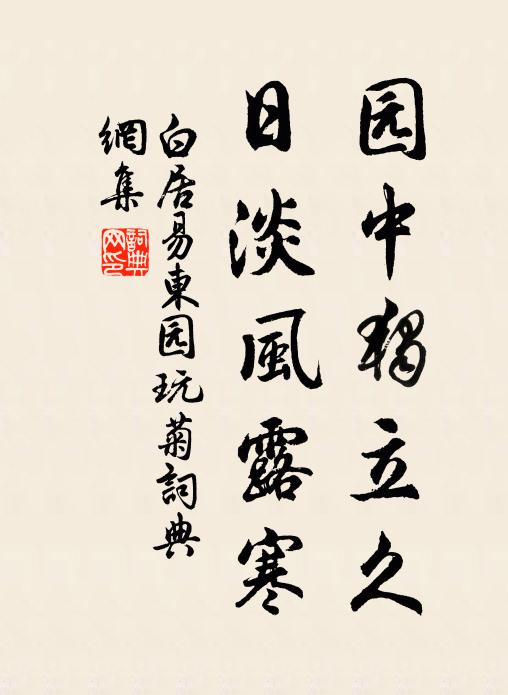 园中獨立久
日淡風露寒
白居易東园玩菊詞典
網集
詞典網印